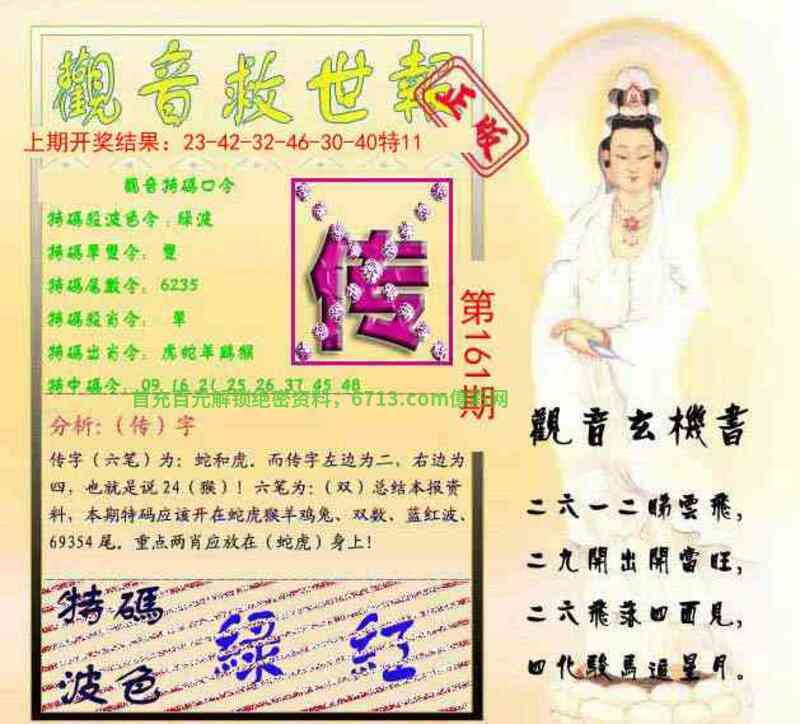 觀音救世報
正版
上期开奖结果：23-42-32-46-30-40特11
觀音特碼口令
特碼殺波色令：綠波
特碼單雙令：雙
特碼尾數令：6235
特碼殺肖令：單
特碼出肖令：虎蛇羊鷄猴
特中碼令：09 16 21 25 26 37 45 48
传
第161期
首充百元解锁绝密资料，6713.com
分析：（传）字
传字（六笔）为：蛇和虎．而传字左边为二，右边为
四，也就是说24（猴）！六笔为：（双）总结本报资
料，本期特码应该开在蛇虎猴羊鸡兔、双数．蓝红波、
69354尾．重点两肖应放在（蛇虎）身上！
特碼
波色
綠 紅
觀音玄機書
二六一二睇雲飛，
二九開出開當旺，
二六飛落四面見，
四化駿馬追星月。